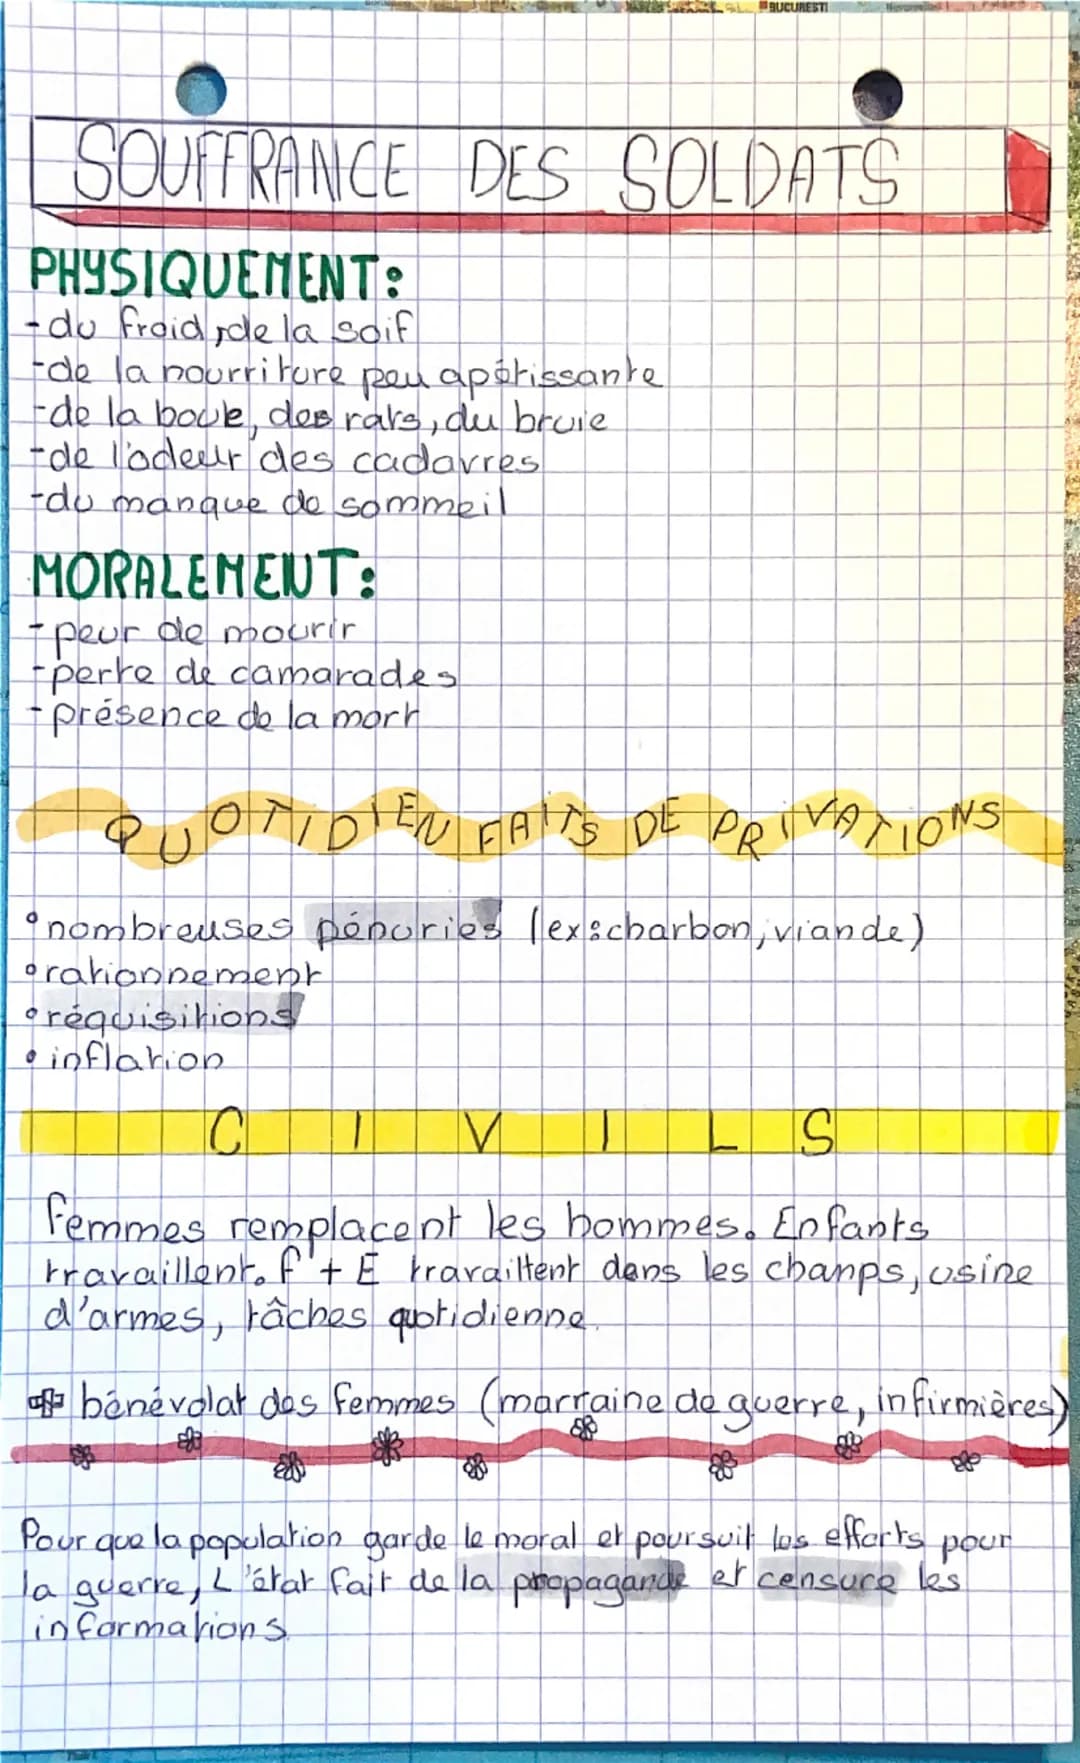 BUCUREŞTI
SOUFFRANCE DES SOLDATS
PHYSIQUEMENT:
-du froid, de la soif
-de la nourriture peu apétissante
-de la boue, des rats, du bruie
-de l'odeur des cadavres
-du manque de sommeil
MORALEMENT:
-peur de mourir
-perte de camarades
-présence de la mort
QUOTIDIEN FAITS DE PRIVATIONS
•nombreuses pénuries (ex:charbon, viande)
•rationnement
•réquisitions
•inflation
CIVILS
Femmes remplacent les hommes. Enfants
travaillent. F + E travaillent dans les champs, usine
d'armes, tâches quotidienne.
+ bénévolat des femmes (marraine de guerre, infirmières)
Pour que la population garde le moral et poursuit les efforts pour
la guerre, L'état fait de la propagande et censure les
informations